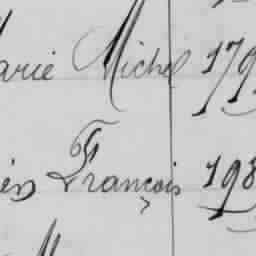 arie Michel 179
ien François 198